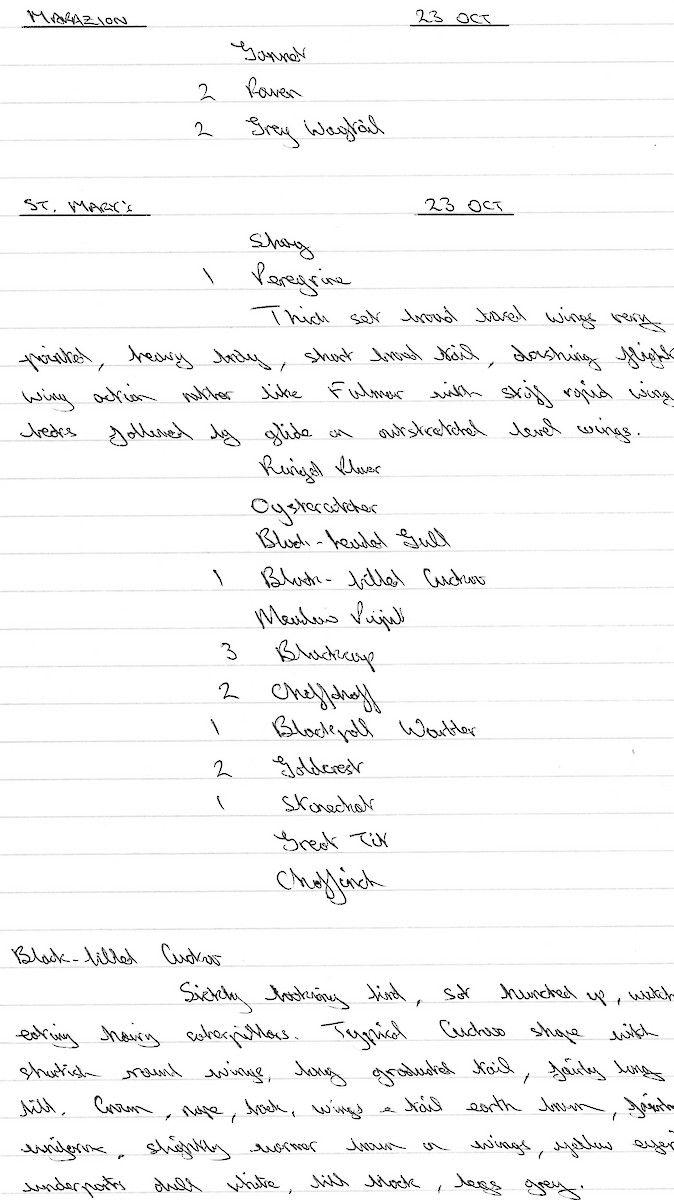 MARAZION 23 OCT
Gannet
2 Raven
2 Grey Wagtail
ST. MARY'S 23 OCT
Shag
1 Peregrine
Thick set broad based wings very
pointed, heavy body, short broad tail, dashing flight
wing action rather like Fulmar with stiff rapid wing
beats followed by glide on outstretched level wings.
Ringed Plover
Oystercatcher
Black-headed Gull
1 Black-billed Cuckoo
Meadow Pipit
3 Blackcap
2 Chiffchaff
1 Blackpoll Warbler
2 Goldcrest
1 Stonechat
Great Tit
Chaffinch
Black-billed Cuckoo
Sickly looking bird, sat hunched up, watch
eating hairy caterpillars. Typical Cuckoo shape with
shortish round wings, long graduated tail, fairly long
bill. Crown, nape, back, wings & tail earth brown,
uniform, slightly warmer brown on wings, yellow
underparts dull white, bill black, legs grey.